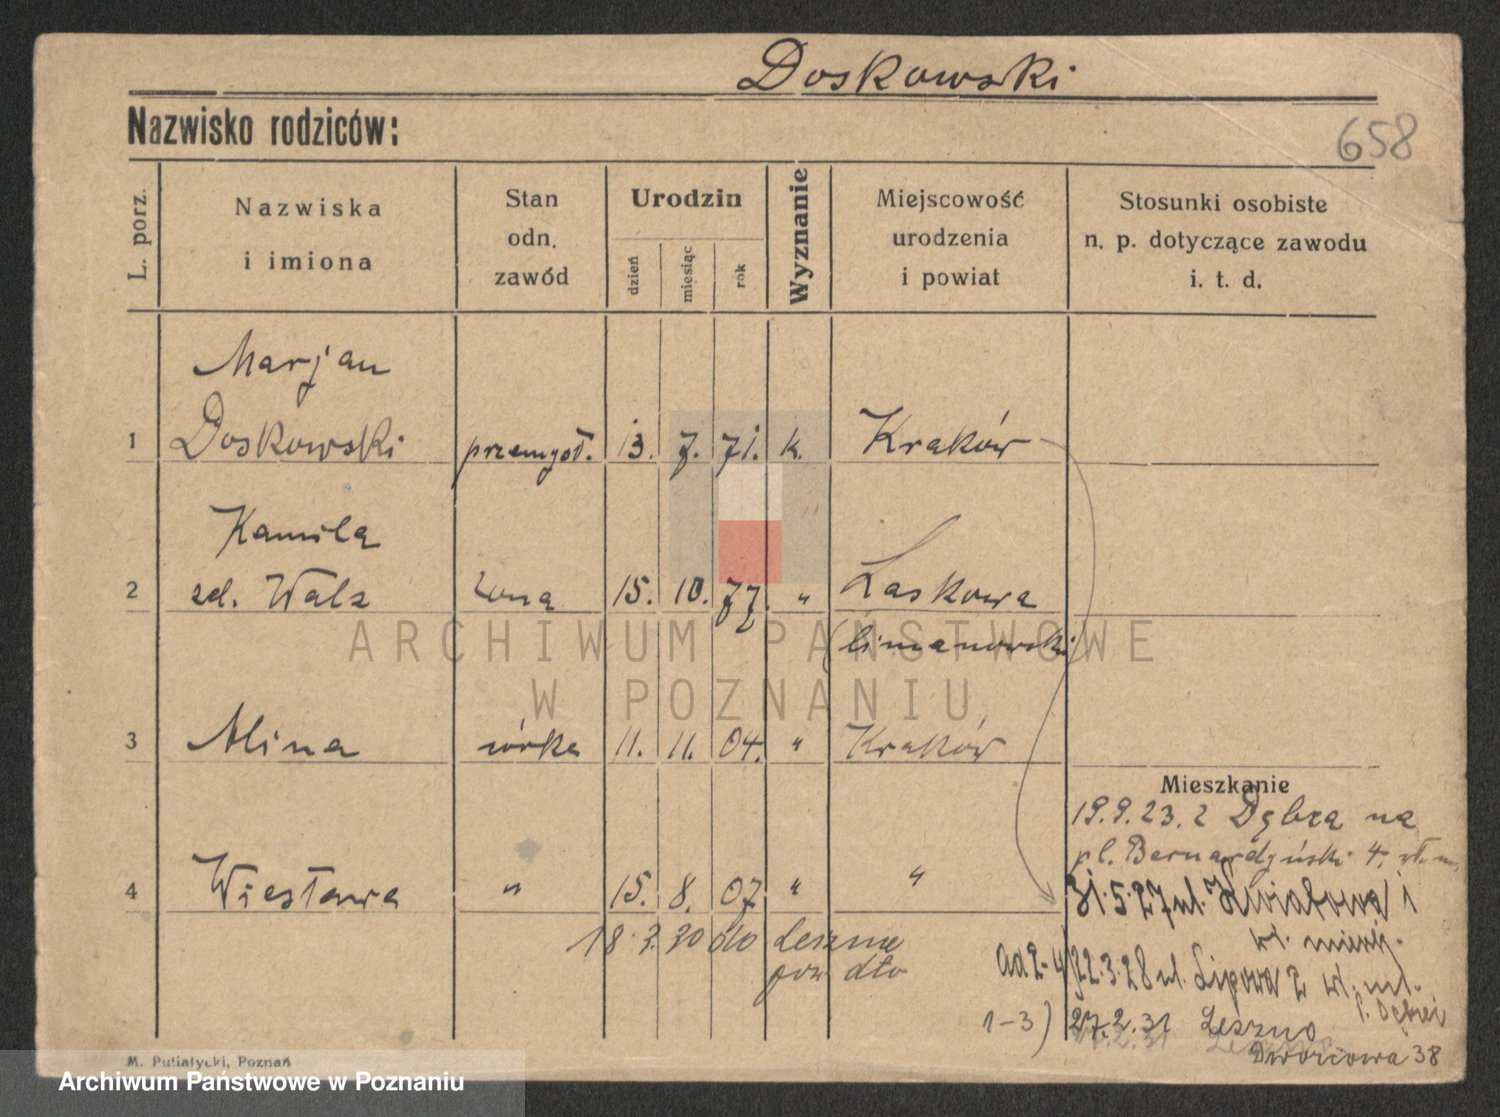 Doskowski
Nazwisko rodziców:
658
L. porz.
Nazwiska
i imiona
Stan
odn.
zawód
Urodzin
dzień
miesiąc
rok
Wyznanie
Miejscowość
urodzenia
i powiat
Stosunki osobiste
n. p. dotyczące zawodu
i. t. d.
Marjan
1 Doskowski przemysł. 13. 7. 71. k. Kraków
Kamila
2 zd. Walz żona 15. 10. 77. " Laskowa
(limanowski)
ARCHIWUM PAŃSTWOWE
W POZNANIU
3 Alina córka 11. 11. 04. " Kraków
Mieszkanie
19.9.23. z Dębca na
pl. Bernardyński 4,
4 Wiesława " 15. 8. 07 " "
31.5.27 ul. Kwiatowa 1
wł. mieszk.
18.3.30 do Leszna
pow dto
ad 2-4) 22.3.28 ul. Lipowa 2 wł. mł.
p. Dębiec
1-3) 27.2.31 Leszno
Dworcowa 38
M. Putiatycki, Poznań
Archiwum Państwowe w Poznaniu